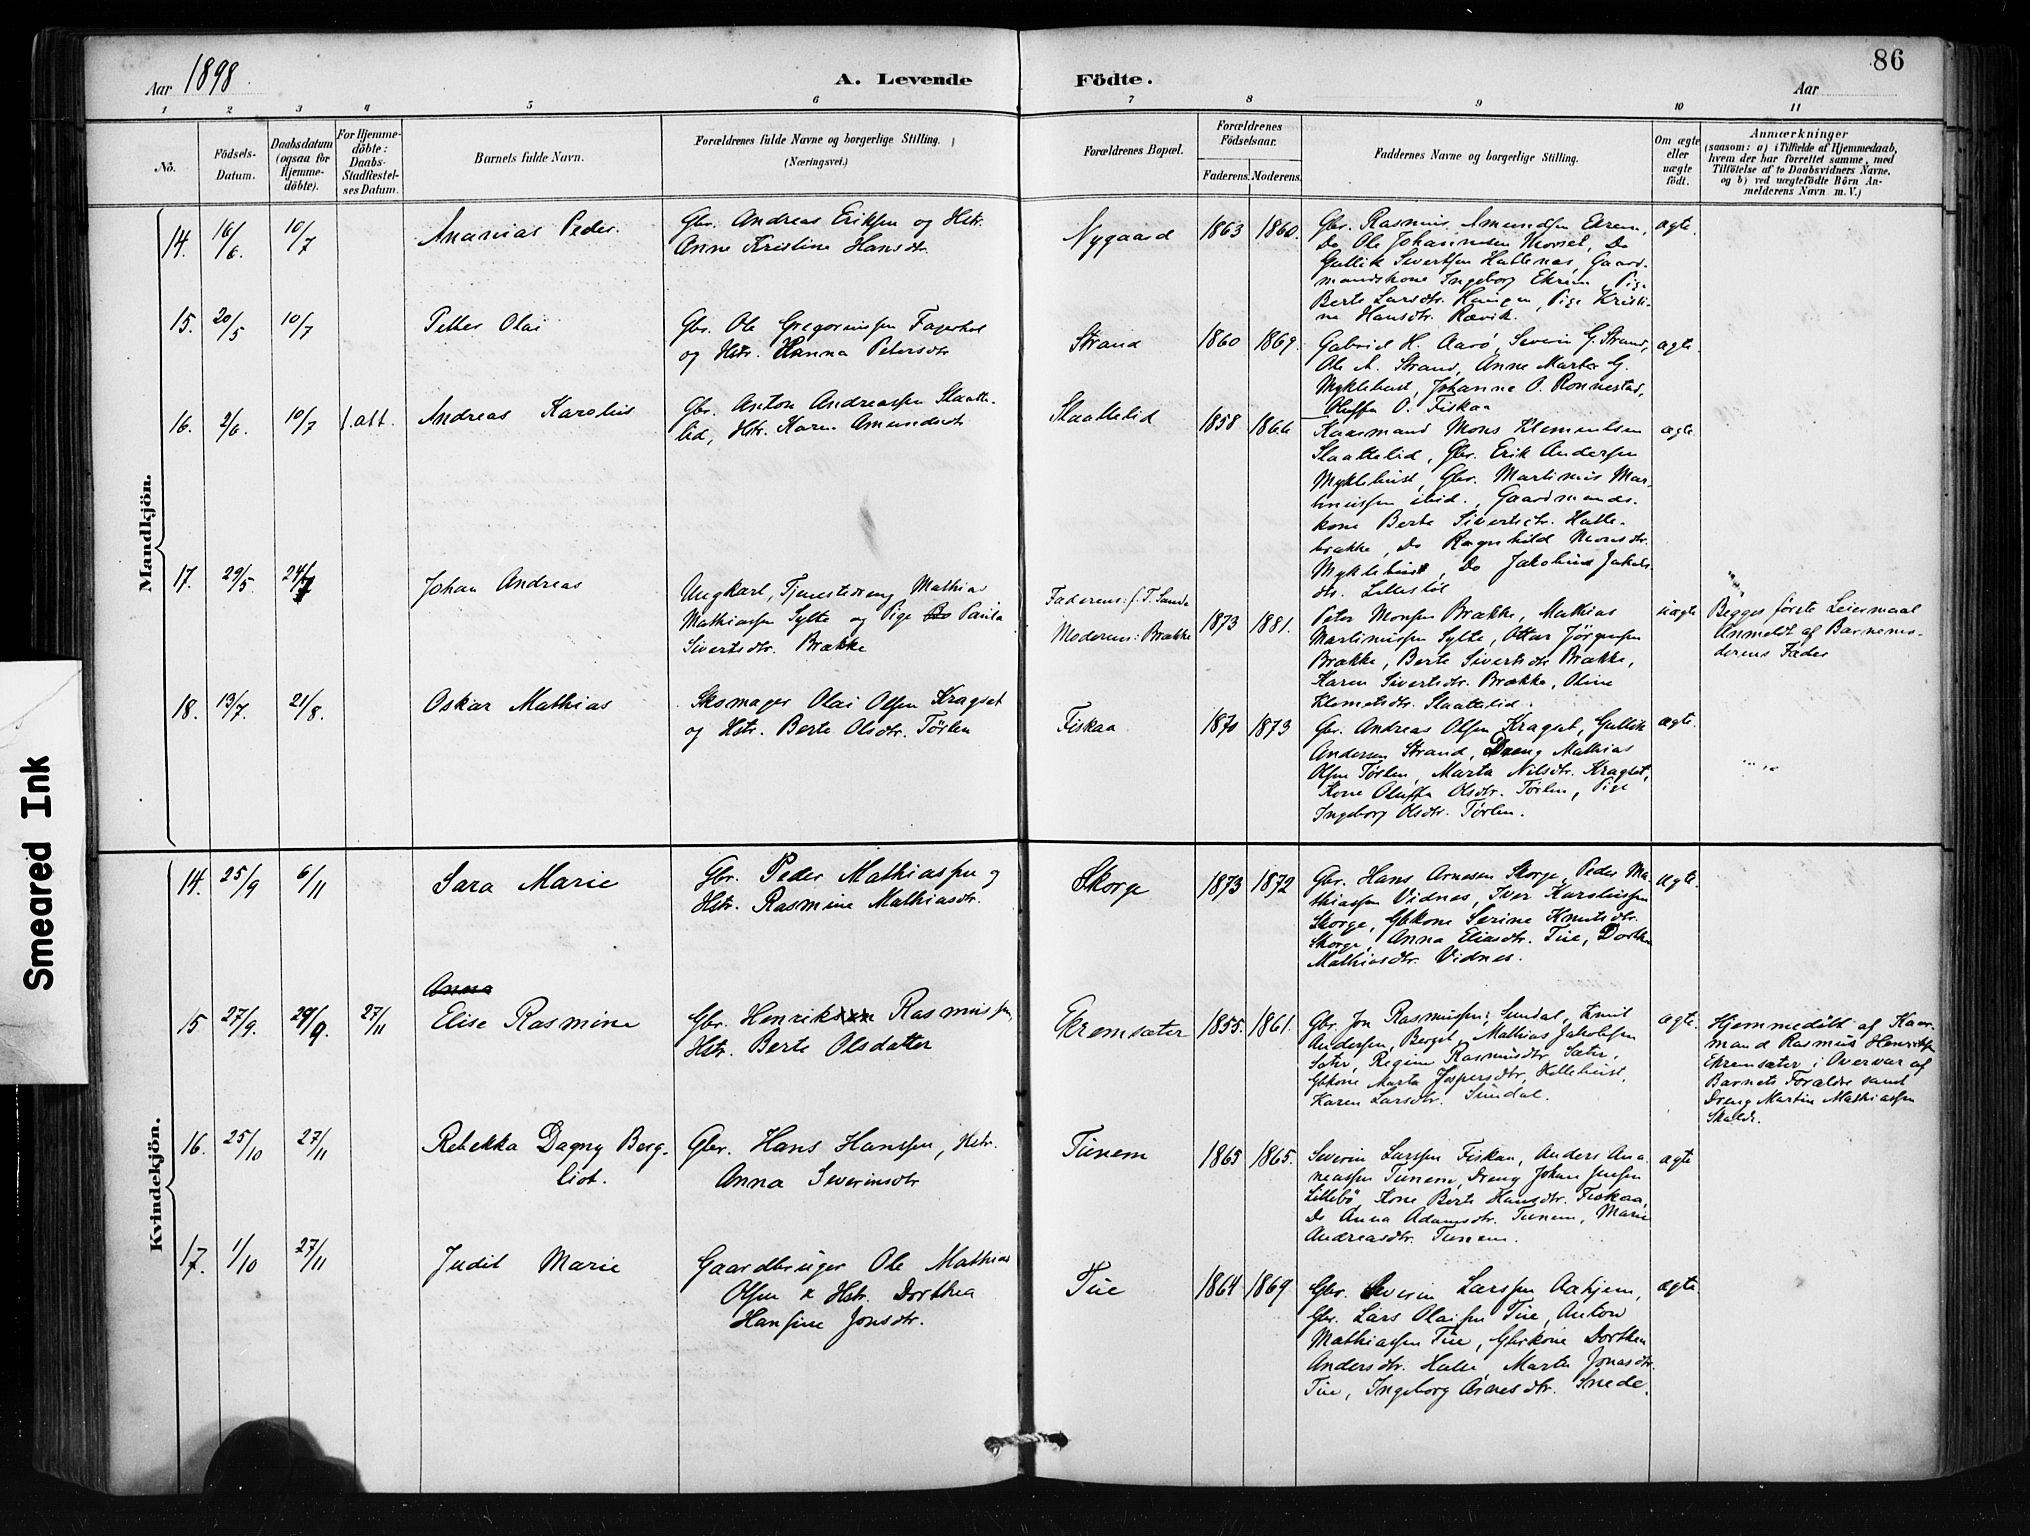 86
Aar 1898
A. Levende Födte.
Aar
1 2 3 4 5 6 7 8 9 10 11
No.
Födsels-
Datum.
Daabsdatum
(ogsaa for
Hjemme-
döbte).
For Hjemme-
döbte:
Daabs-
Stadfæstel-
ses Datum.
Barnets fulde Navn.
Forældrenes fulde Navne og borgerlige Stilling.
(Næringsvei.)
Forældrenes Bopæl.
Forældrenes
Födselsaar.
Faderens. Moderens.
Faddernes Navne og borgerlige Stilling.
Om ægte
eller
uægte
födt.
Anmærkninger
(saasom: a) i Tilfælde af Hjemmedaab,
hvem der har forrettet samme, med
Tilföielse af to Daabsvidners Navne,
og b) ved uægtefödte Börn An-
melderens Navn m. V.)
Mandkjön.
14. 16/6. 10/7 Ananias Peder.
Gbr. Andreas Eriksen og Hstr.
Anne Kristine Hansdtr.
Nygaard 1863 1860.
Gbr. Rasmus Amundsen Ekrem,
Do Ole Johannesen Morset, Do
Gullik Sivertsen Hattenes, Gaard-
mandskone Ingeborg Ekrem, Pige
Berte Larsdtr. Haugen, Pige Kristi-
ne Hansdtr. Rævik.
ægte.
15. 20/5 10/7 Petter Olai
Gbr. Ole Gregoriussen Fagerhol
og Hstr. Hanna Petersdtr
Strand 1860 1869.
Gabriel H. Aarö, Severin G. Strand,
Ole A. Strand, Anne Marta G.
Myklebust, Johanne O. Ronnestad,
Oluffa O. Fiskaa
ægte.
16. 2/6. 10/7 f. att. Andreas Karolus
Gbr. Anton Andreassen Slaatte-
lid, Hstr. Karen Amundsdtr
Slaattelid 1858 1866
Kaarmand Mons Klementsen
Slaattelid, Gbr. Erik Andersen
Myklebust, Gbr. Martinus Mar-
tinussen ibid., Gaardmands-
kone Berte Sivertsdtr. Hatle-
brække, Do Ragnhild Monsdtr.
Myklebust, Do Jakobine Jakobs
dtr. Lillestöl
ægte
17. 29/5. 24/7 Johan Andreas
Ungkarl, Tjenestedreng Mathias
Mathiassen Sylte og Pige Paula
Sivertsdtr. Brække
Faderens: f. T. Sande
Moderens: Brække
1873 1881.
Peter Monsen Brække, Mathias
Martinussen Sylte, Ottar Jörgensen
Brække, Berte Sivertsdtr Brække,
Karen Sivertsdtr. Brække, Oline
Klemetsdtr. Slaattelid.
uægte
Begges første Leiermaal
Anmeldt af Barnemo-
derens Fader
18. 13/7. 21/8. Oskar Mathias
Skomager Olai Olsen Kragset
og Hstr. Berte Olsdtr. Törlen
Fiskaa 1870 1873
Gbr. Andreas Olsen Kragset, Gullik
Andersen Strand, Dreng Mathias
Olsen Törlen, Marta Nilsdtr. Kragset,
Kone Oluffa Olsdtr. Törlen, Pige
Ingeborg Olsdtr. Törlen.
ægte.
Kvindekjön.
14. 25/9 6/11 Sara Marie
Gbr. Peder Mathiassen og
Hstr. Rasmine Mathiasdtr.
Skorge 1873 1872
Gbr. Hans Arnesen Skorge, Peder Ma-
thiassen Vidnes, Iver Karolussen
Skorge, Gbkone Serine Knutsdtr.
Skorge, Anna Eliasdtr. Tue, Dorthea
Mathiasdtr. Vidnes.
ægte.
Anna
15 27/9. 29/9. 27/11 Elise Rasmine
Gbr. Henrik Rasmussen,
Hstr. Berte Olsdatter
Ekremsæter 1855. 1861.
Gbr. Jon Rasmussen, Sundal, Knut
Andersen, Berget, Mathias Jakobsen
Sæter, Regine Rasmusdtr. Sæter,
Gbkone Marta Jespersdtr. Hellebust,
Karen Larsdtr. Sundal.
ægte.
Hjemmedöbt af Kaar-
mand Rasmus Henriksen
Ekremsæter i Overvær af
Barnets Forældre samt
Dreng Martin Mathiassen
16. 25/10 27/11 Rebekka Dagny Berg-
liot.
Gbr. Hans Hanssen, Hstr.
Anna Severinsdtr
Tunem 1865 1865.
Severin Larssen Fiskaa, Anders Ana-
neassen Tunem, Dreng Johan Jensen
Lillebö Kone Berte Hansdtr. Fiskaa,
Do Anna Adamsdtr. Tunem, Marie
Andreasdtr. Tunem.
ægte
17. 1/10 27/11 Judit Marie
Gaardbruger Ole Mathias
Olsen & Hstr. Dorthea
Hansine Jonsdtr.
Tue 1864 1869
Gbr. Severin Larssen Aahjem,
Gbr. Lars Olaisen Tue, Anton
Mathiassen Tue, Gbrkone Dorthea
Andersdtr. Hatle Marte Jonasdtr.
Tue, Ingeborg Arnesdtr. Snede.
ægte
Smeared Ink